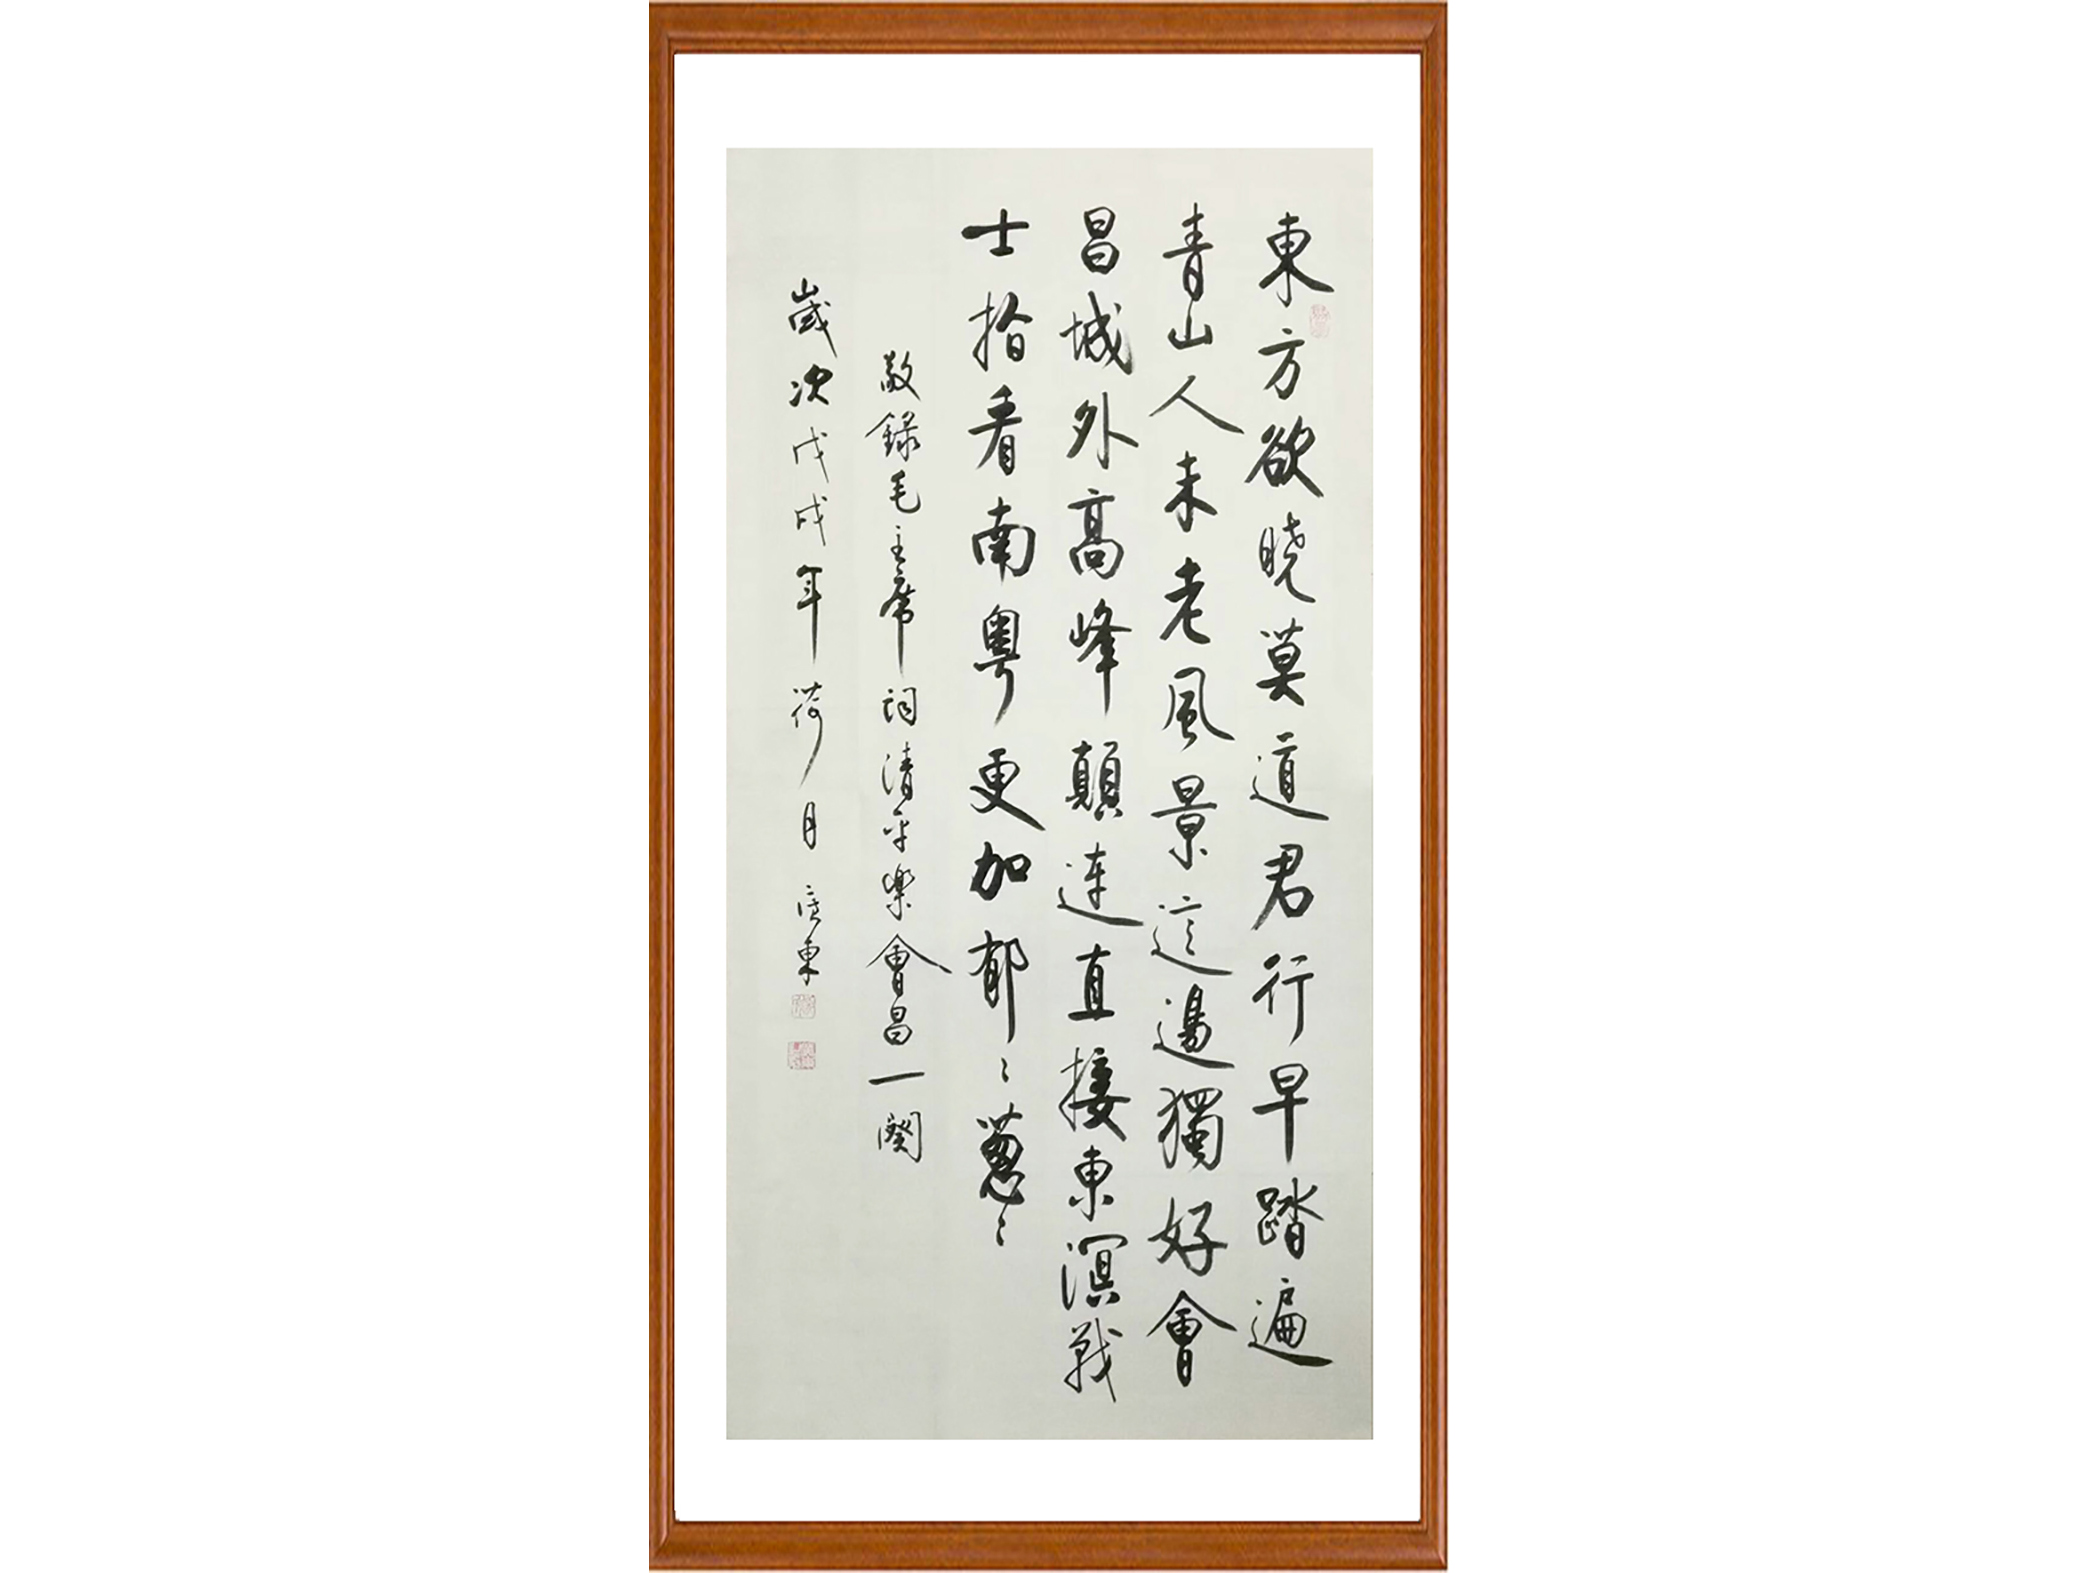 東方欲晓莫道君行早踏遍
青山人未老風景這邊獨好會
昌城外高峰顛連直接東溟戰
士指看南粵更加郁〻葱〻
敬録毛主席詞清平樂會昌一闋
歲次戊戌年荷月 東